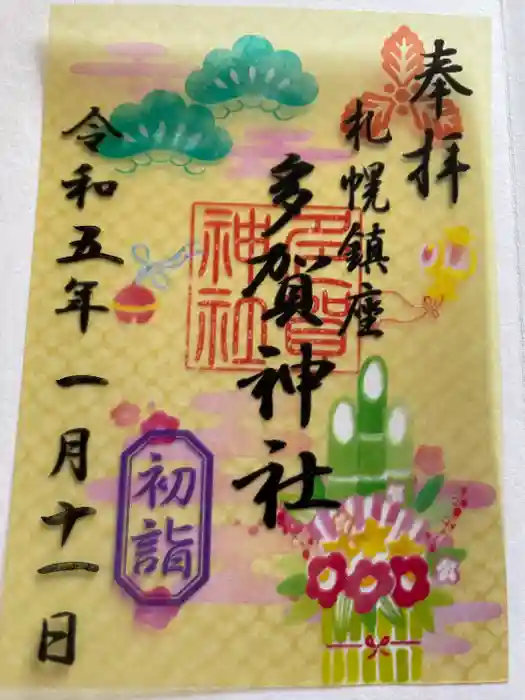 奉拝
札幌鎮座
多賀神社
多賀
神社
初詣
令和五年一月十一日